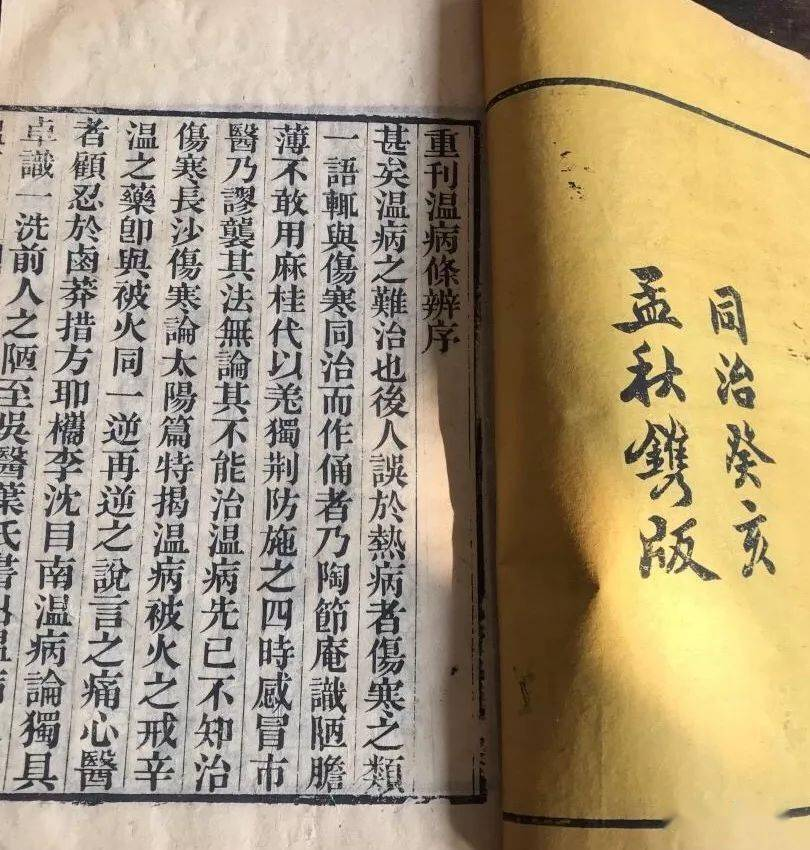 同治癸亥
孟秋鐫版
重刊温病條辨序
甚矣温病之難治也後人誤於熱病者傷寒之類
一語輒與傷寒同治而作俑者乃陶節庵識陋膽
薄不敢用麻桂代以羌獨荆防施之四時感冒市
醫乃謬襲其法無論其不能治温病先已不知治
傷寒長沙傷寒論太陽篇特揭温病被火之戒辛
温之藥卽與被火同一逆再逆之說言之痛心醫
者顧忍於鹵莽措方耶檇李沈目南温病論獨具
卓識一洗前人之陋至吳醫葉氏書出温病